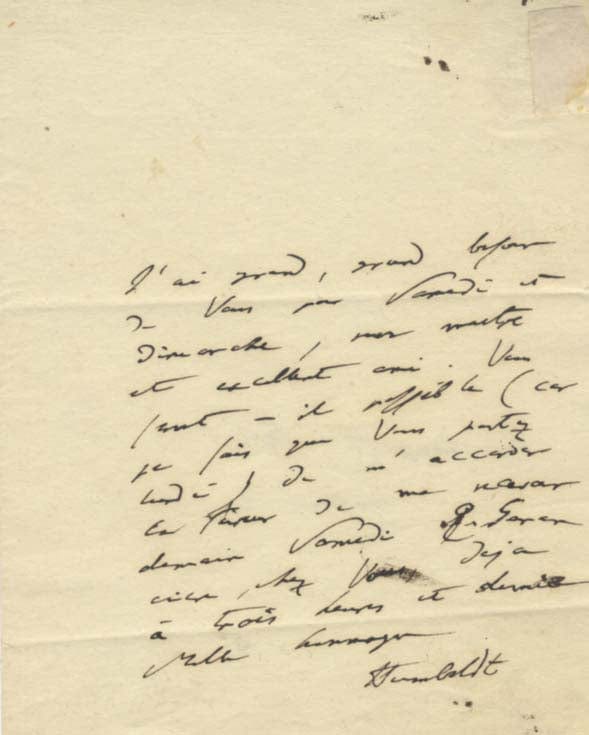 J'ai grand, grand besoin
de Vous par Samedi et
Dimanche, mon maitre
et excellent ami. Vous
serait-il possible (car
je sais que Vous partez
lundi) de m'accorder
la faveur de me recevoir
demain Samedi
chez Vous deja
à trois heures et demie
Mille hommages
Humboldt